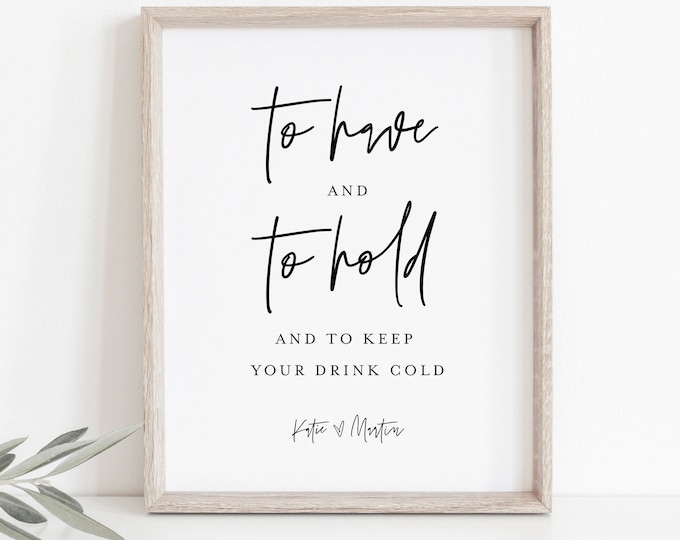 to have
AND
to hold
AND TO KEEP
YOUR DRINK COLD
Katie ♡ Martin